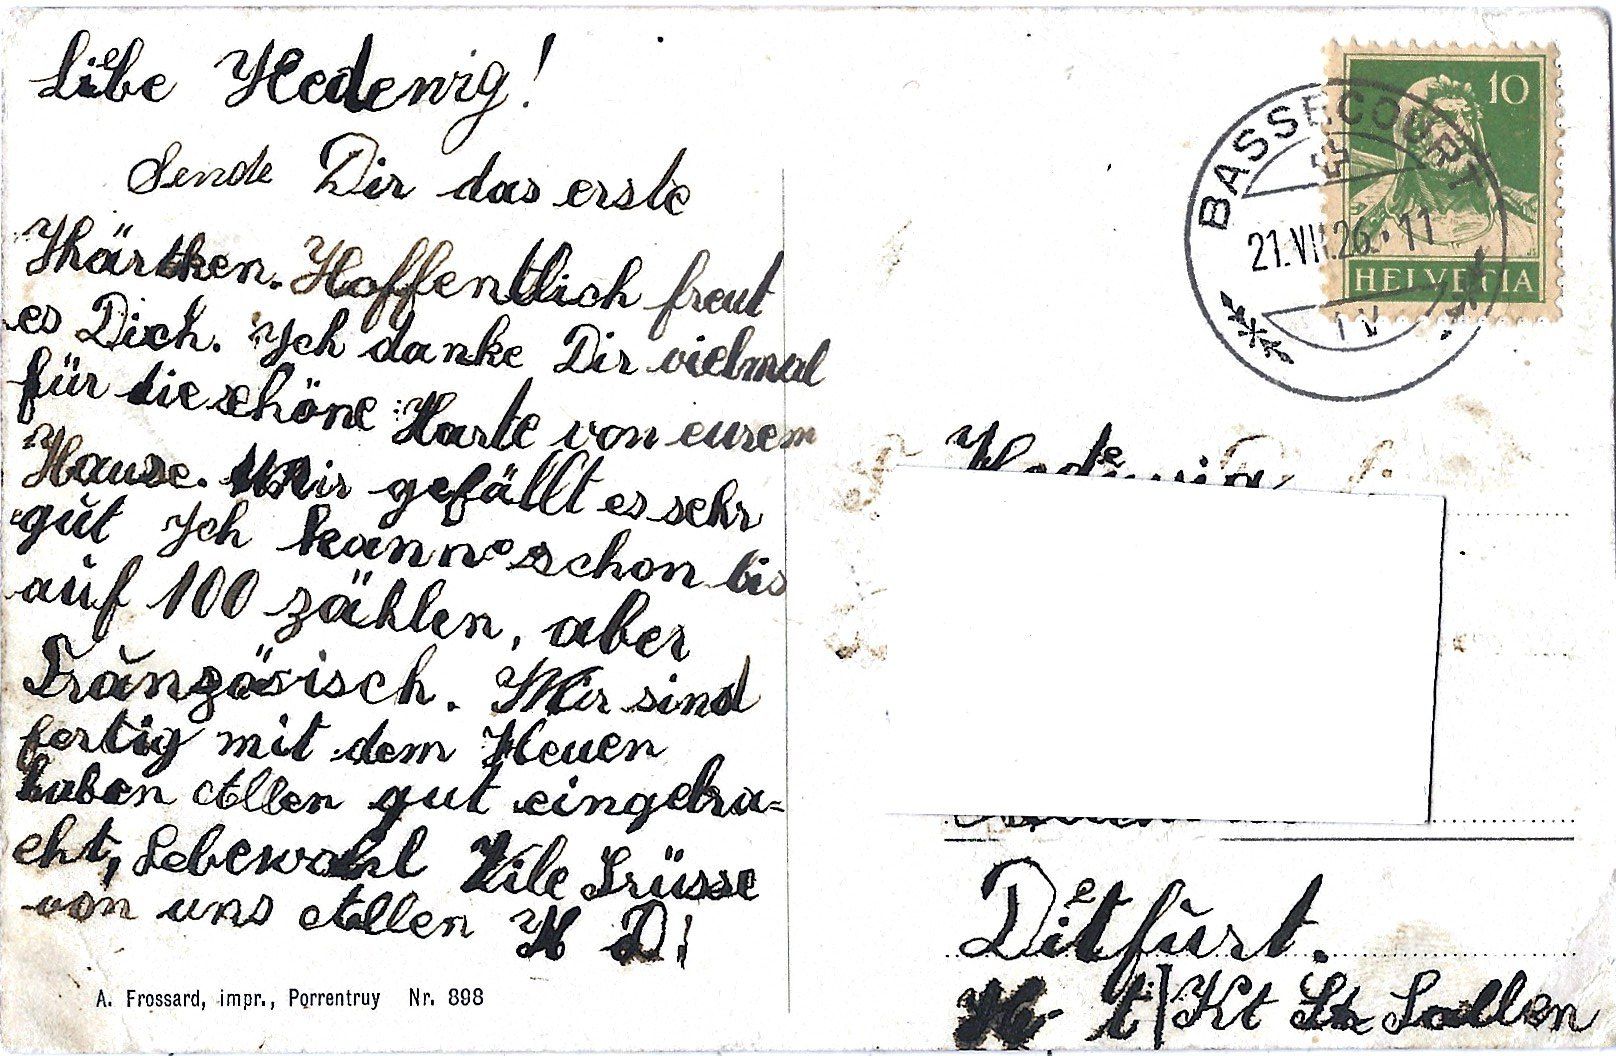 Liebe Hedewig!
Sende Dir das erste
Khärtken. Hoffentlich freut
es Dich. Ich danke Dir vielmal
für die schöne Karte von eurem
Hause. Mir gefällt es sehr
gut Ich kann schon bis
auf 100 zählen, aber
Französisch. Wir sind
fertig mit dem Heuen
haben Allen gut eingebra=
cht, Lebewohl Vile Grüsse
von uns Allen K D!
A. Frossard, impr., Porrentruy Nr. 898
10
HELVETIA
BASSECOURT
21.VII.26.-11
Hedewig
Dietfurt.
Kt St Gallen